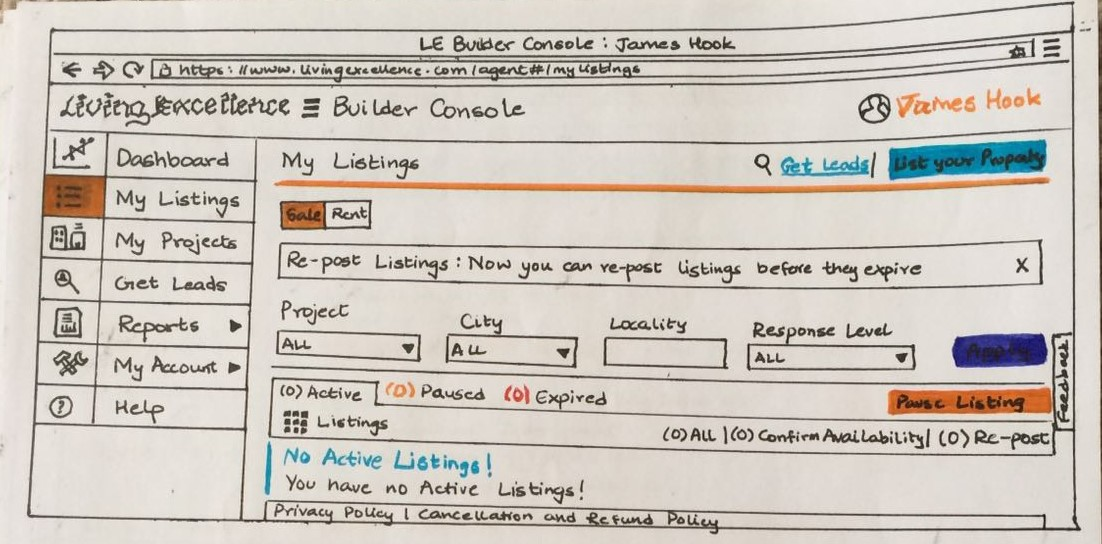 LE Builder Console : James Hook
https://www.livingexcellence.com/agent#/mylistings
Living Excellence Builder Console
James Hook
Dashboard
My Listings
My Projects
Get Leads
Reports
My Account
Help
My Listings
Get Leads|
List your Property
Sale Rent
Re-post Listings : Now you can re-post listings before they expire X
Project City Locality Response Level
ALL ALL ALL Apply
Feedback
(0) Active (0) Paused (0) Expired
Pause Listing
Listings
(0) All | (0) Confirm Availability | (0) Re-post
No Active Listings!
You have no Active Listings!
Privacy Policy | Cancellation and Refund Policy